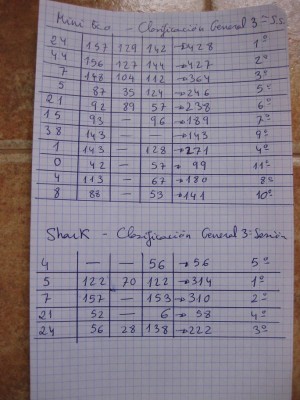 Mini Evo - Clasificación General 3ª
24 157 129 142 → 428 1º
44 156 127 144 → 427 2º
7 148 104 112 → 364 3º
5 87 35 124 → 246 5º
21 92 89 57 → 238 6º
15 93 — 96 → 189 7º
38 143 — — → 143 9º
1 143 — 128 → 271 4º
0 42 — 57 → 99 11º
4 113 — 67 → 180 8º
8 88 — 53 → 141 10º
Shark - Clasificación General 3ª Sesión
4 — — 56 → 56 5º
5 122 70 122 → 314 1º
7 157 — 153 → 310 2º
21 52 — 6 → 58 4º
24 56 28 138 → 222 3º